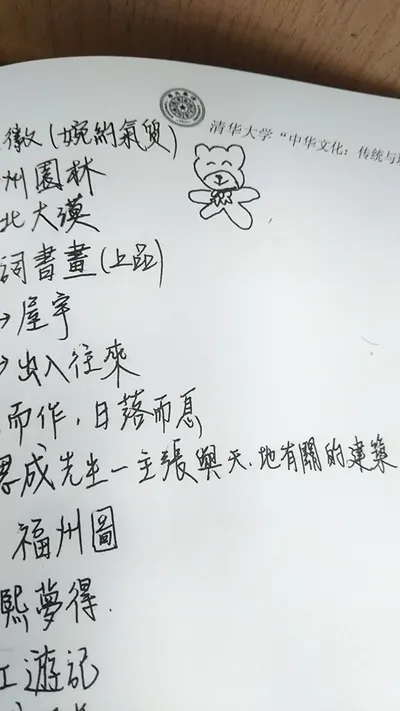 清华大学“中华文化：传统与
徽(婉約氣質)
州園林
北大漠
詞書畫(上品)
→屋宇
→出入往來
而作，日落而息
成先生一主張與天.地有關的建築
福州圖
熙夢得.
遊記